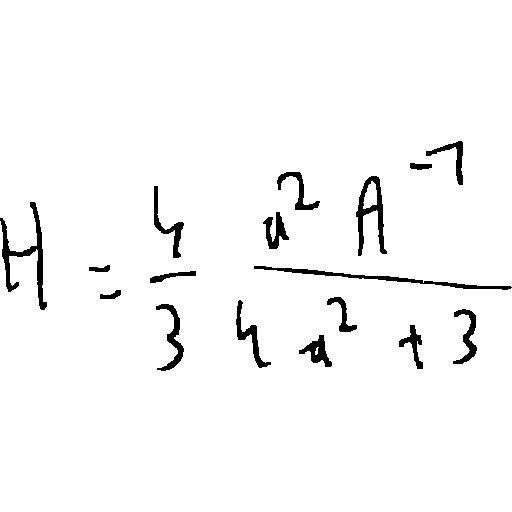 H = \frac{4}{3} \frac{a^2 A^{-1}}{4 a^2 + 3}